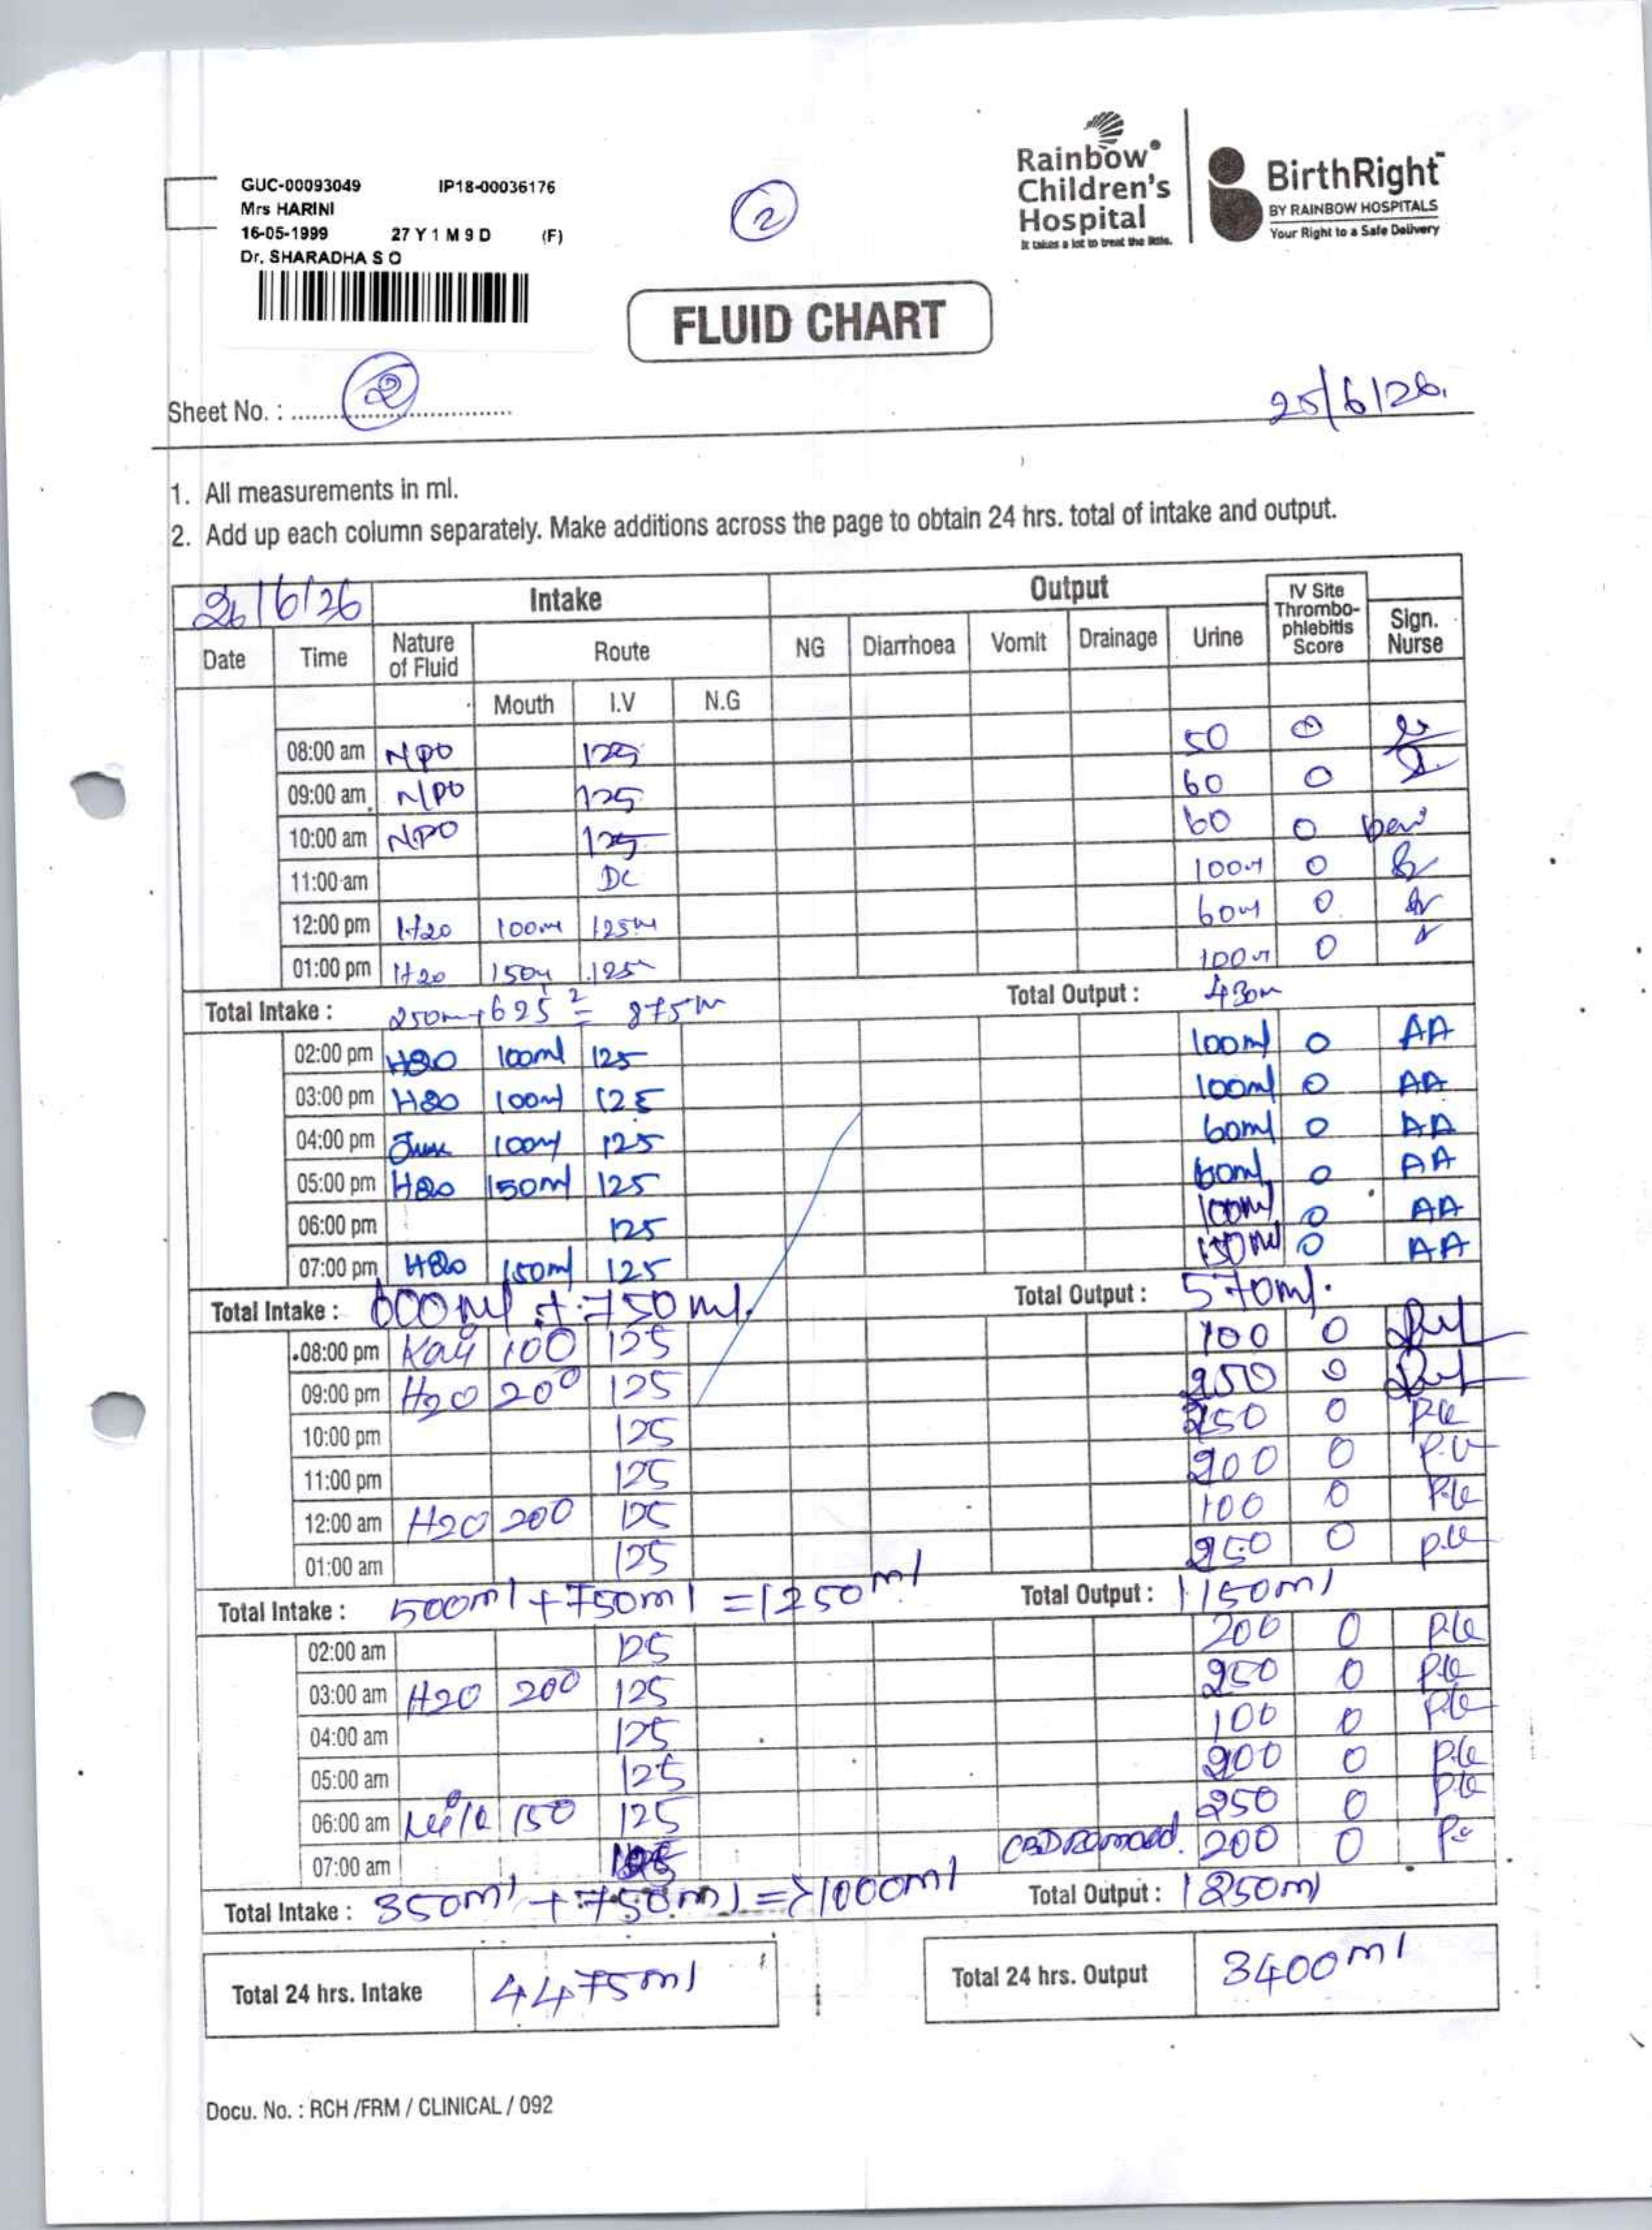 GUC-00093049 IP18-00036176
Mrs HARINI
16-05-1999 27 Y 1 M 9 D (F)
Dr. SHARADHA S O
2
Rainbow Children's Hospital
It takes a lot to treat the little.
BirthRight
BY RAINBOW HOSPITALS
Your Right to a Safe Delivery
FLUID CHART
Sheet No. : 2
25/6/26.
1. All measurements in ml.
2. Add up each column separately. Make additions across the page to obtain 24 hrs. total of intake and output.
26/6/26 Intake Output IV Site Thrombo-phlebitis Score Sign. Nurse
Date Time Nature of Fluid Route NG Diarrhoea Vomit Drainage Urine
Mouth I.V N.G
08:00 am NPO 125 50 0
09:00 am NPO 125 60 0
10:00 am NPO 125 60 0
11:00 am DC 100 0
12:00 pm H20 100m 125m 60m 0
01:00 pm H20 150 125 100 0
Total Intake : 250m+625 = 875m Total Output : 430m
02:00 pm H2O 100ml 125 100ml 0 AA
03:00 pm H2O 100ml 125 100ml 0 AA
04:00 pm 100ml 125 60ml 0 AA
05:00 pm H2O 150ml 125 60ml 0 AA
06:00 pm 125 100ml 0 AA
07:00 pm H2O 150ml 125 150ml 0 AA
Total Intake : 600ml + 750ml. Total Output : 570ml.
08:00 pm 100 125 100 0
09:00 pm H2O 200 125 250 0
10:00 pm 125 250 0
11:00 pm 125 200 0
12:00 am H2O 200 125 100 0
01:00 am 125 250 0
Total Intake : 500ml + 750ml = 1250ml Total Output : 1150ml
02:00 am 125 200 0
03:00 am H2O 200 125 250 0
04:00 am 125 100 0
05:00 am 125 200 0
06:00 am 150 125 250 0
07:00 am 125 CBD Removed. 200 0
Total Intake : 350ml + 750ml => 1000ml Total Output : 1250ml
Total 24 hrs. Intake 4475ml Total 24 hrs. Output 3400ml
Docu. No. : RCH /FRM / CLINICAL / 092